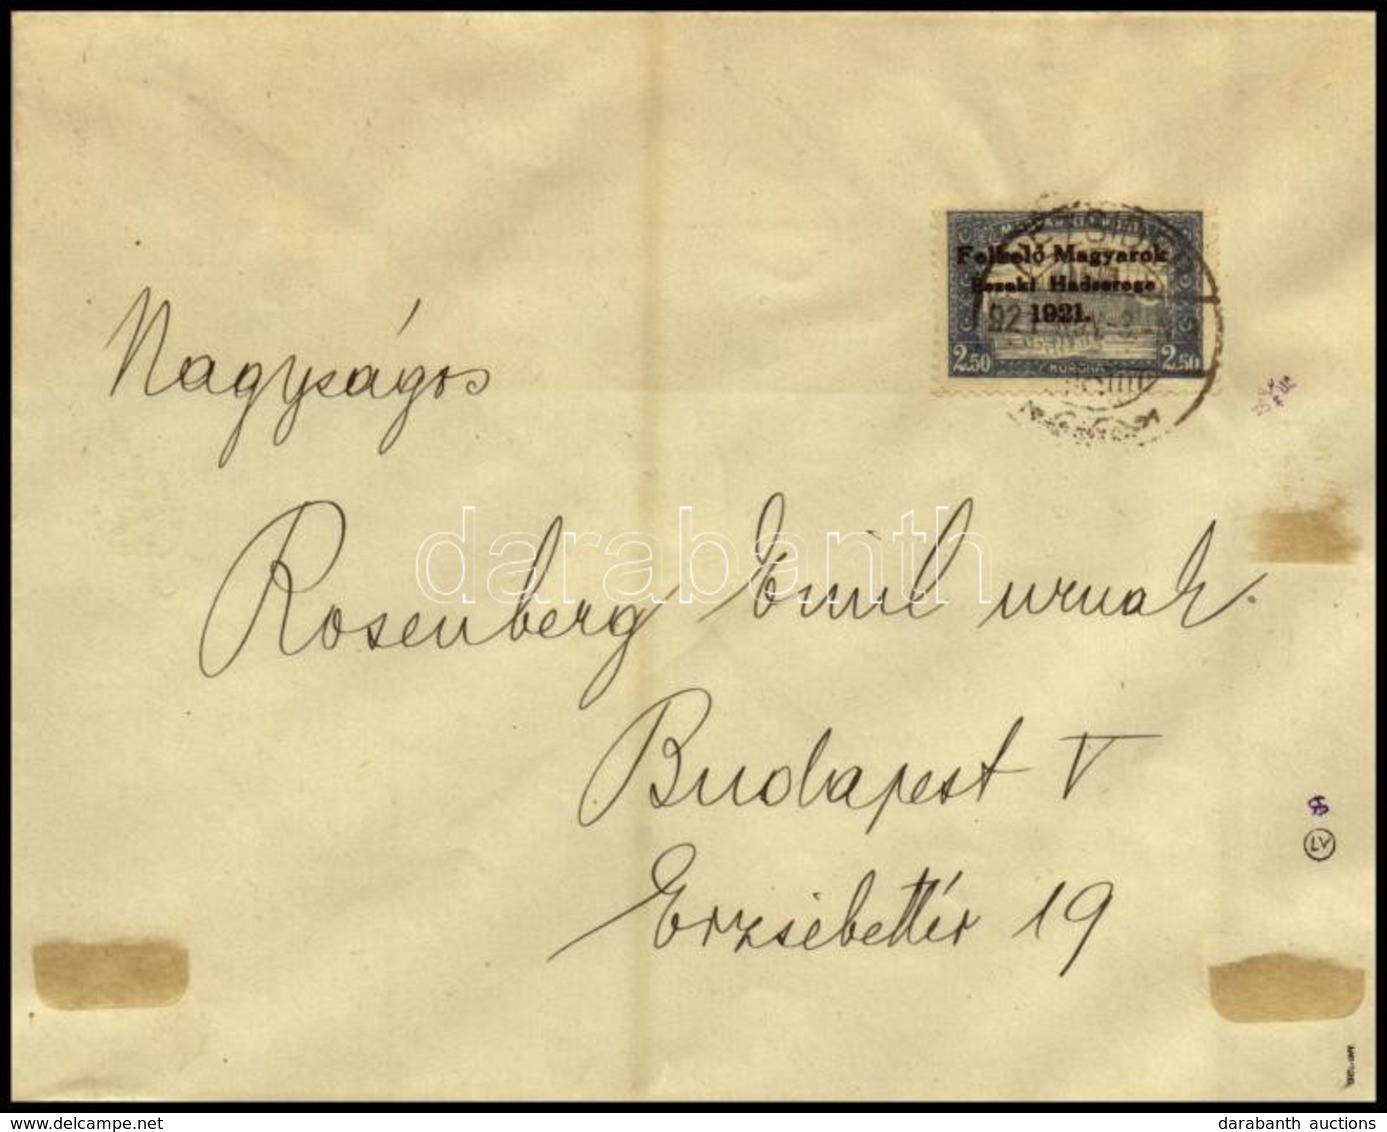 Felkelő Magyarok
Északi Hadserege
1921.
2.50 KORONA 2.50
Nagyságos
Rosenberg Emil urnak.
Budapest V
Erzsébettér 19
darabanth
LV
www.delcampe.net
darabanth auctions